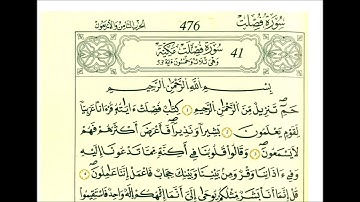 سُورَةُ فُصِّلَتْ 476 الحزب الثامن والأربعون
سُورَةُ فُصِّلَتْ مَكِّيَّةٌ 41
وَهِيَ ثَلَاثٌ وَخَمْسُونَ ءَايَةً 53
بِسْمِ اللَّهِ الرَّحْمَٰنِ الرَّحِيمِ
حمٓ تَنزِيلٌ مِّنَ الرَّحْمَٰنِ الرَّحِيمِ ۝ كِتَٰبٌ فُصِّلَتْ ءَايَٰتُهُۥ قُرْءَانًا عَرَبِيًّا
لِّقَوْمٍ يَعْلَمُونَ ۝ بَشِيرًا وَنَذِيرًا فَأَعْرَضَ أَكْثَرُهُمْ فَهُمْ
لَا يَسْمَعُونَ ۝ وَقَالُوا۟ قُلُوبُنَا فِىٓ أَكِنَّةٍ مِّمَّا تَدْعُونَآ إِلَيْهِ
وَفِىٓ ءَاذَانِنَا وَقْرٌ وَمِنۢ بَيْنِنَا وَبَيْنِكَ حِجَابٌ فَاعْمَلْ إِنَّنَا عَٰمِلُونَ ۝
قُلْ إِنَّمَآ أَنَا۠ بَشَرٌ مِّثْلُكُمْ يُوحَىٰٓ إِلَىَّ أَنَّمَآ إِلَٰهُكُمْ إِلَٰهٌ وَٰحِدٌ فَاسْتَقِيمُوٓا۟